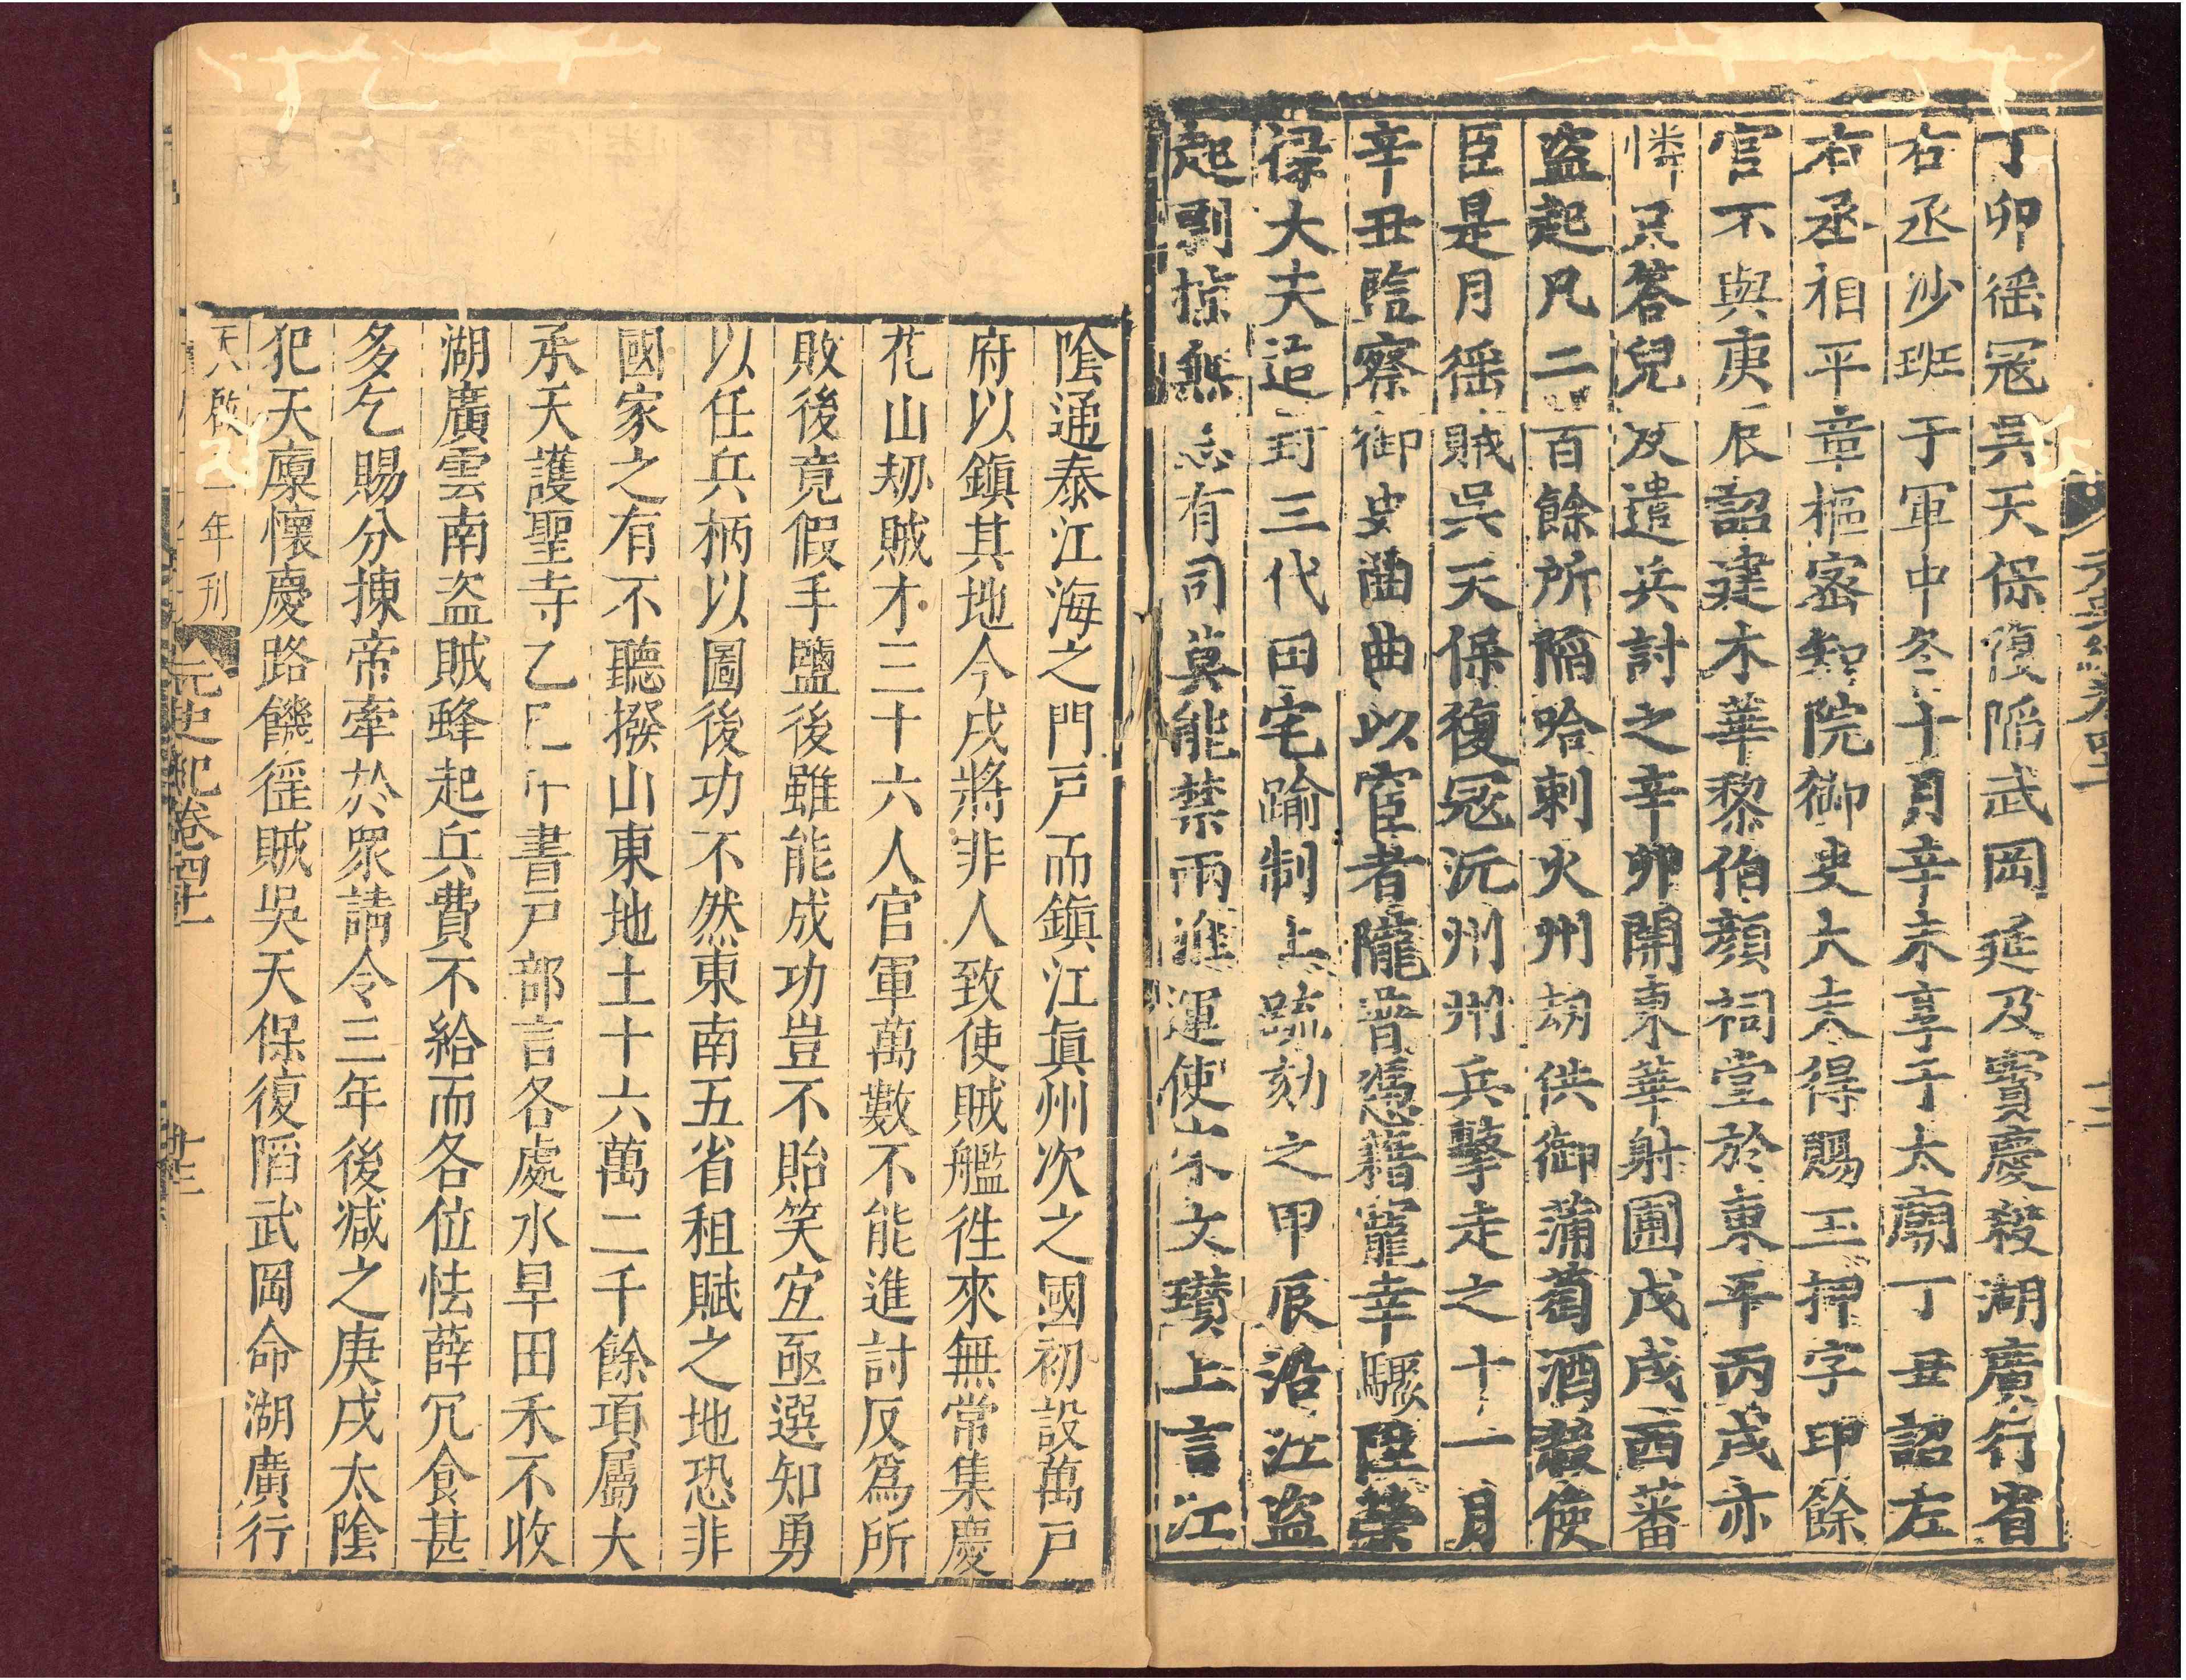 丁卯徭冦吳天保復陷武岡延及寶慶殺湖廣行省
右丞沙班于軍中冬十月辛未享于太廟丁丑詔左
右丞相平章樞密知院御史大夫得賜玉押字印餘
官不與庚辰詔建木華黎伯顏祠堂於東平丙戌亦
憐只荅兒反遣兵討之辛卯開東華射圃戊戌西蕃
盗起凡二百餘所陷哈剌火州劫供御蒲萄酒殺使
臣是月徭賊吳天保復冦沅州州兵擊走之十一月
辛丑監察御史曲曲以宦者隴普憑藉寵幸驟陞榮
禄大夫追封三代田宅踰制上疏劾之甲辰沿江盗
起剽掠無忌有司莫能禁兩淮運使宋文瓚上言江
元史紀卷四十一
十二
隂通泰江海之門戸而鎭江眞州次之國初設萬戸
府以鎭其地今戍將非人致使賊艦徃來無常集慶
花山刼賊才三十六人官軍萬數不能進討反爲所
敗後竟假手鹽徒雖能成功豈不貽笑宜亟選知勇
以任兵柄以圖後功不然東南五省租賦之地恐非
國家之有不聽撥山東地土十六萬二千餘項屬大
承天護聖寺乙巳中書戸部言各處水旱田禾不收
湖廣雲南盗賊蜂起兵費不給而各位怯薛冗食甚
多乞賜分揀帝牽於衆請令三年後减之庚戌太隂
犯天廩懷慶路饑徭賊吳天保復陷武岡命湖廣行
天啟二年刊
元史紀卷四十一
十三